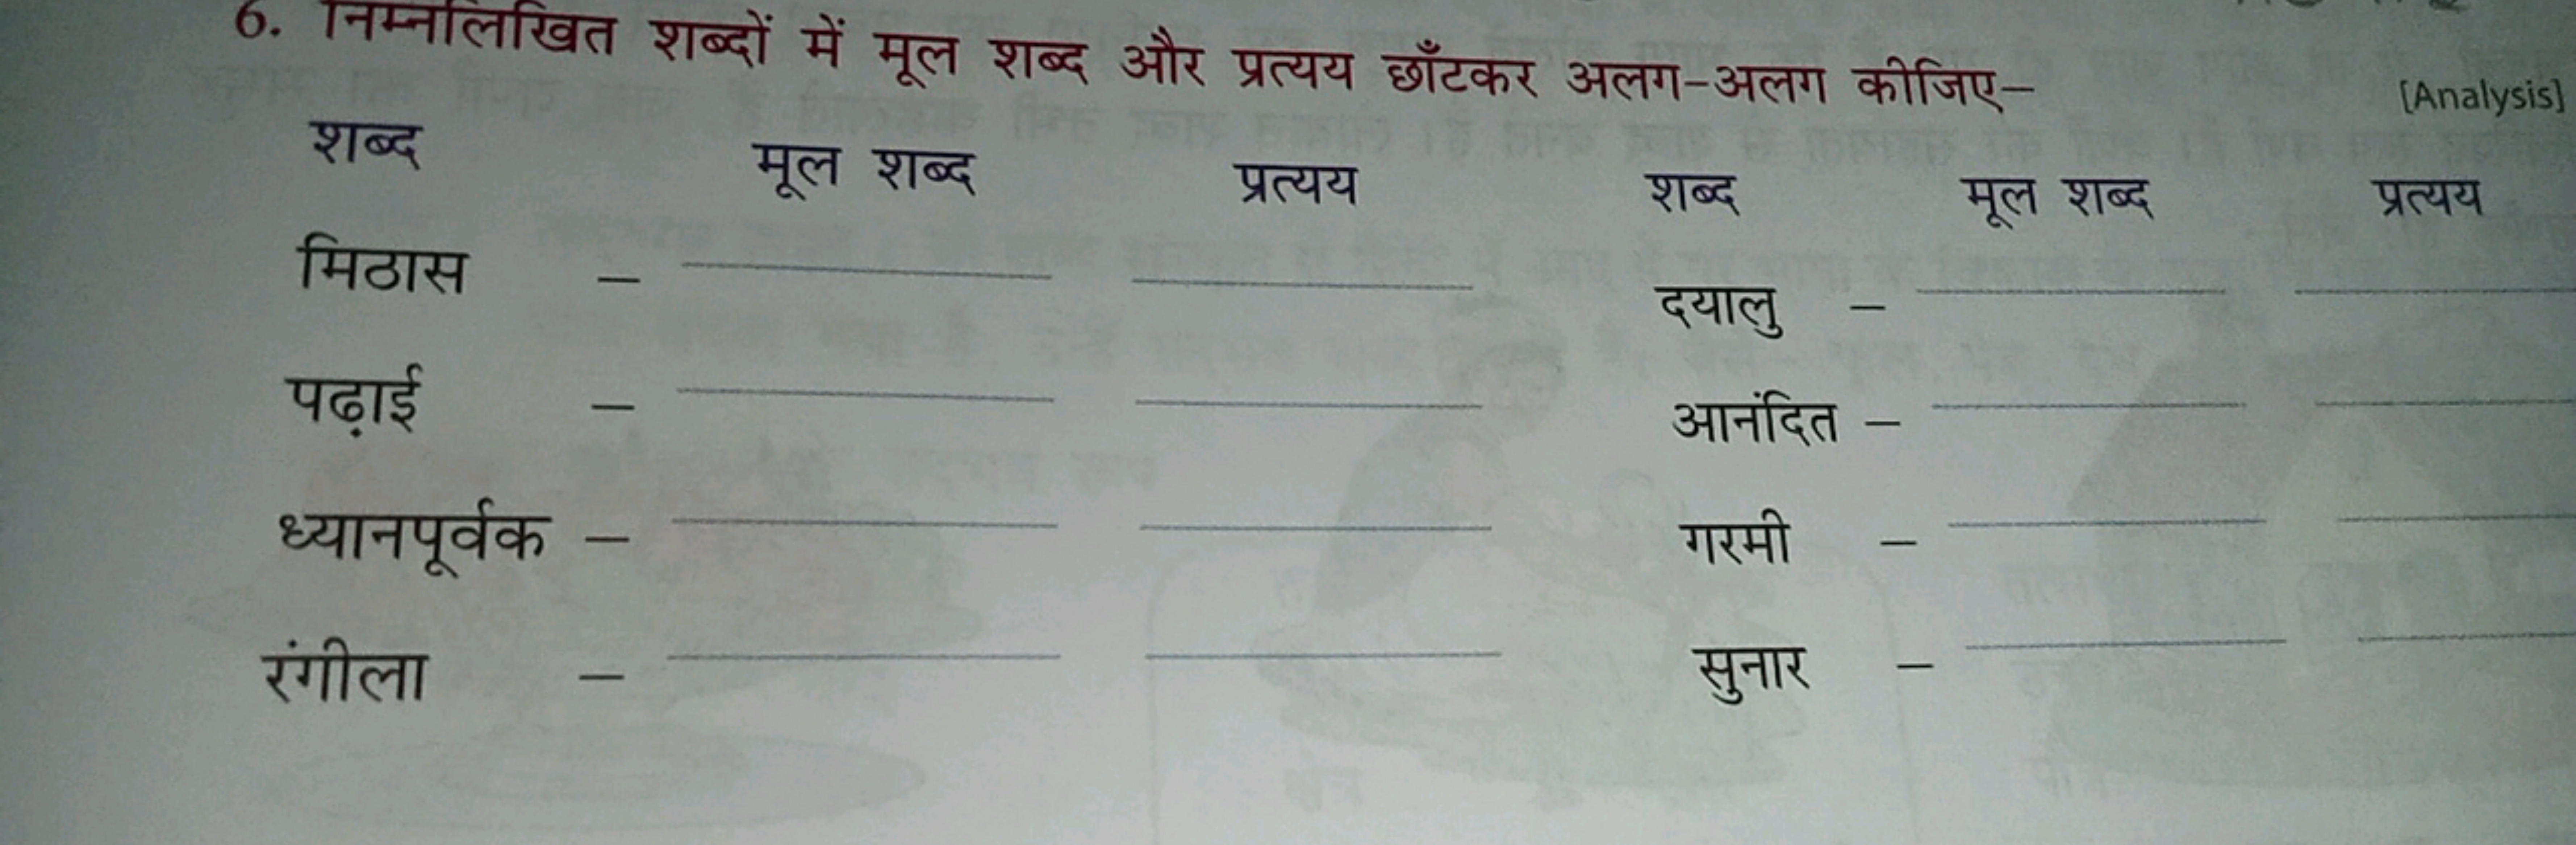 6. निम्नलिखित शब्दों में मूल शब्द और प्रत्यय छाँटकर अलग-अलग कीजिए– [Analysis]
शब्द मूल शब्द प्रत्यय शब्द मूल शब्द प्रत्यय
मिठास – दयालु –
पढ़ाई – आनंदित –
ध्यानपूर्वक – गरमी –
रंगीला – सुनार –